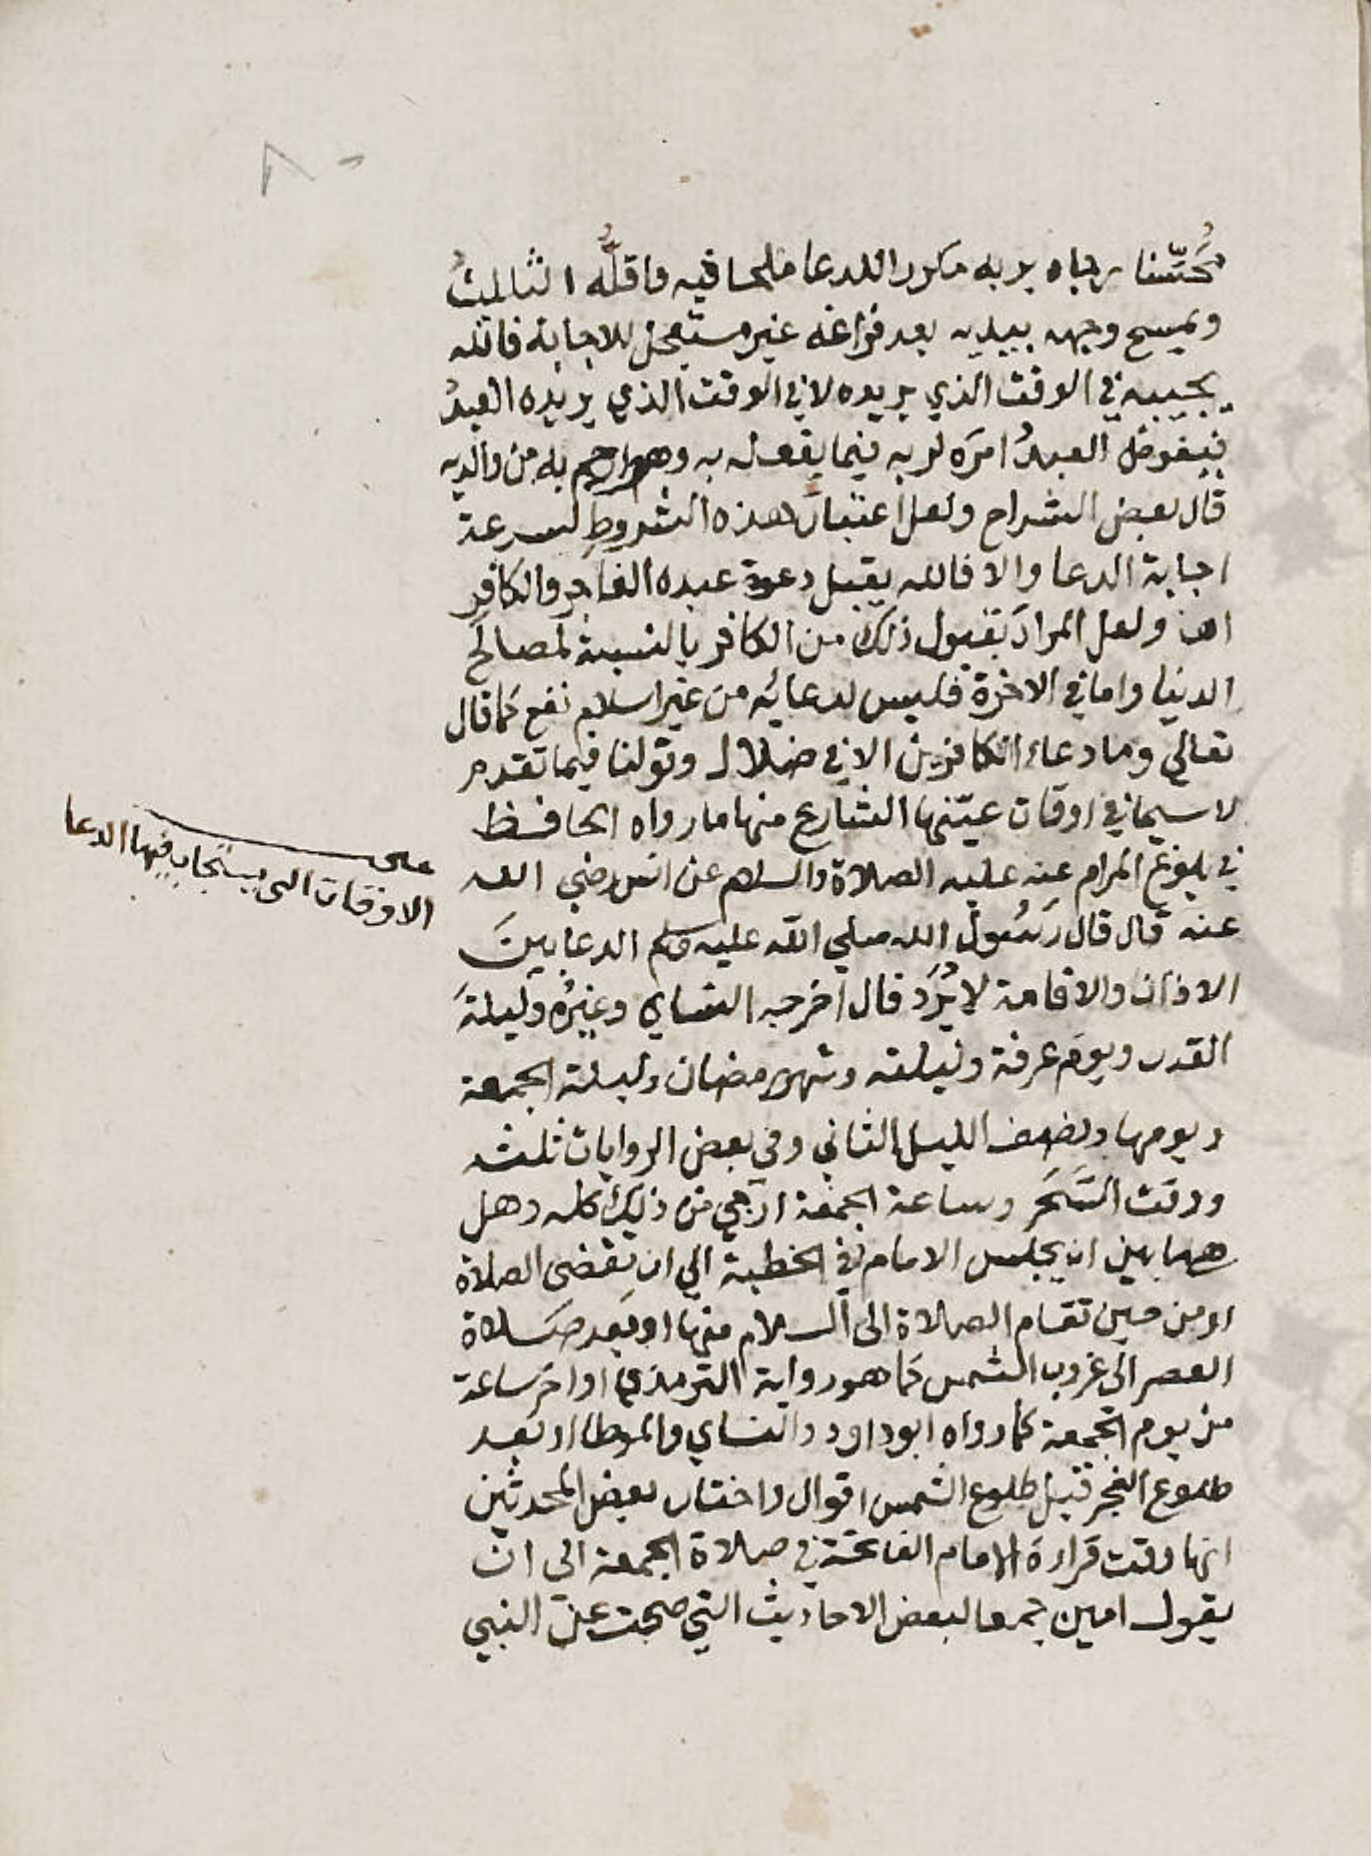 محسّنا رجاه بربه مكررا للدعا ملحا فيه واقلُّه التثليثُ
ويمسح وجهه بيديه بعد فراغه غير مستعجل للاجابة فالله
يجيبه في الوقت الذي يريده لا في الوقت الذي يريده العبدُ
فيفوض العبدُ امرَه لربه فيما يفعله به وهو ارحم به من والديه
قال بعض الشراح ولعل اعتبارَ هذه الشروطِ لسرعة
اجابة الدعا والا فالله يقبل دعوة عبده الفاجر والكافر
اهـ ولعل المرادَ بقبول ذلك من الكافر بالنسبة لمصالح
الدنيا واما في الاخرة فليس لدعائه من غير اسلام نفع كما قال
تعالى وما دعاء الكافرين الا في ضلال وقولنا فيما تقدم
لا سيما في اوقات عيّنها الشارع منها ما رواه الحافظ
في بلوغ المرام عنه عليه الصلاة والسلام عن انس رضي الله
عنه قال قال رَسُولُ الله صلي الله عليه وسلم الدعا بينَ
الاذان والاقامة لا يُرَد قال اخرجه النساي وغيرُه وليلةَ
القدر ويوم عرفة وليلته وشهر رمضان وليلة الجمعة
ويومها ونصف الليل الثاني وفي بعض الروايات ثلثه
ووقت السَّحَر وساعة الجمعة ارجي من ذلك كله وهل
هي ما بين ان يجلس الامام في الخطبة الي ان تقضى الصلاة
او من حين تقام الصلاة الى السلام منها او بعد صَلاة
العصر الى غروب الشمس كما هو رواية الترمذي او اخر ساعة
من يوم الجمعة كما رواه ابو داود والنساي والموطا او بعد
طلوع الفجر قبل طلوع الشمس اقوال واختار بعض المحدثين
انها وقت قراءة الامام الفاتحة في صلاة الجمعة الى ان
يقول امين جمعا لبعض الاحاديث التي صحت عن النبي
على
الاوقات التي يستجاب فيها الدعا